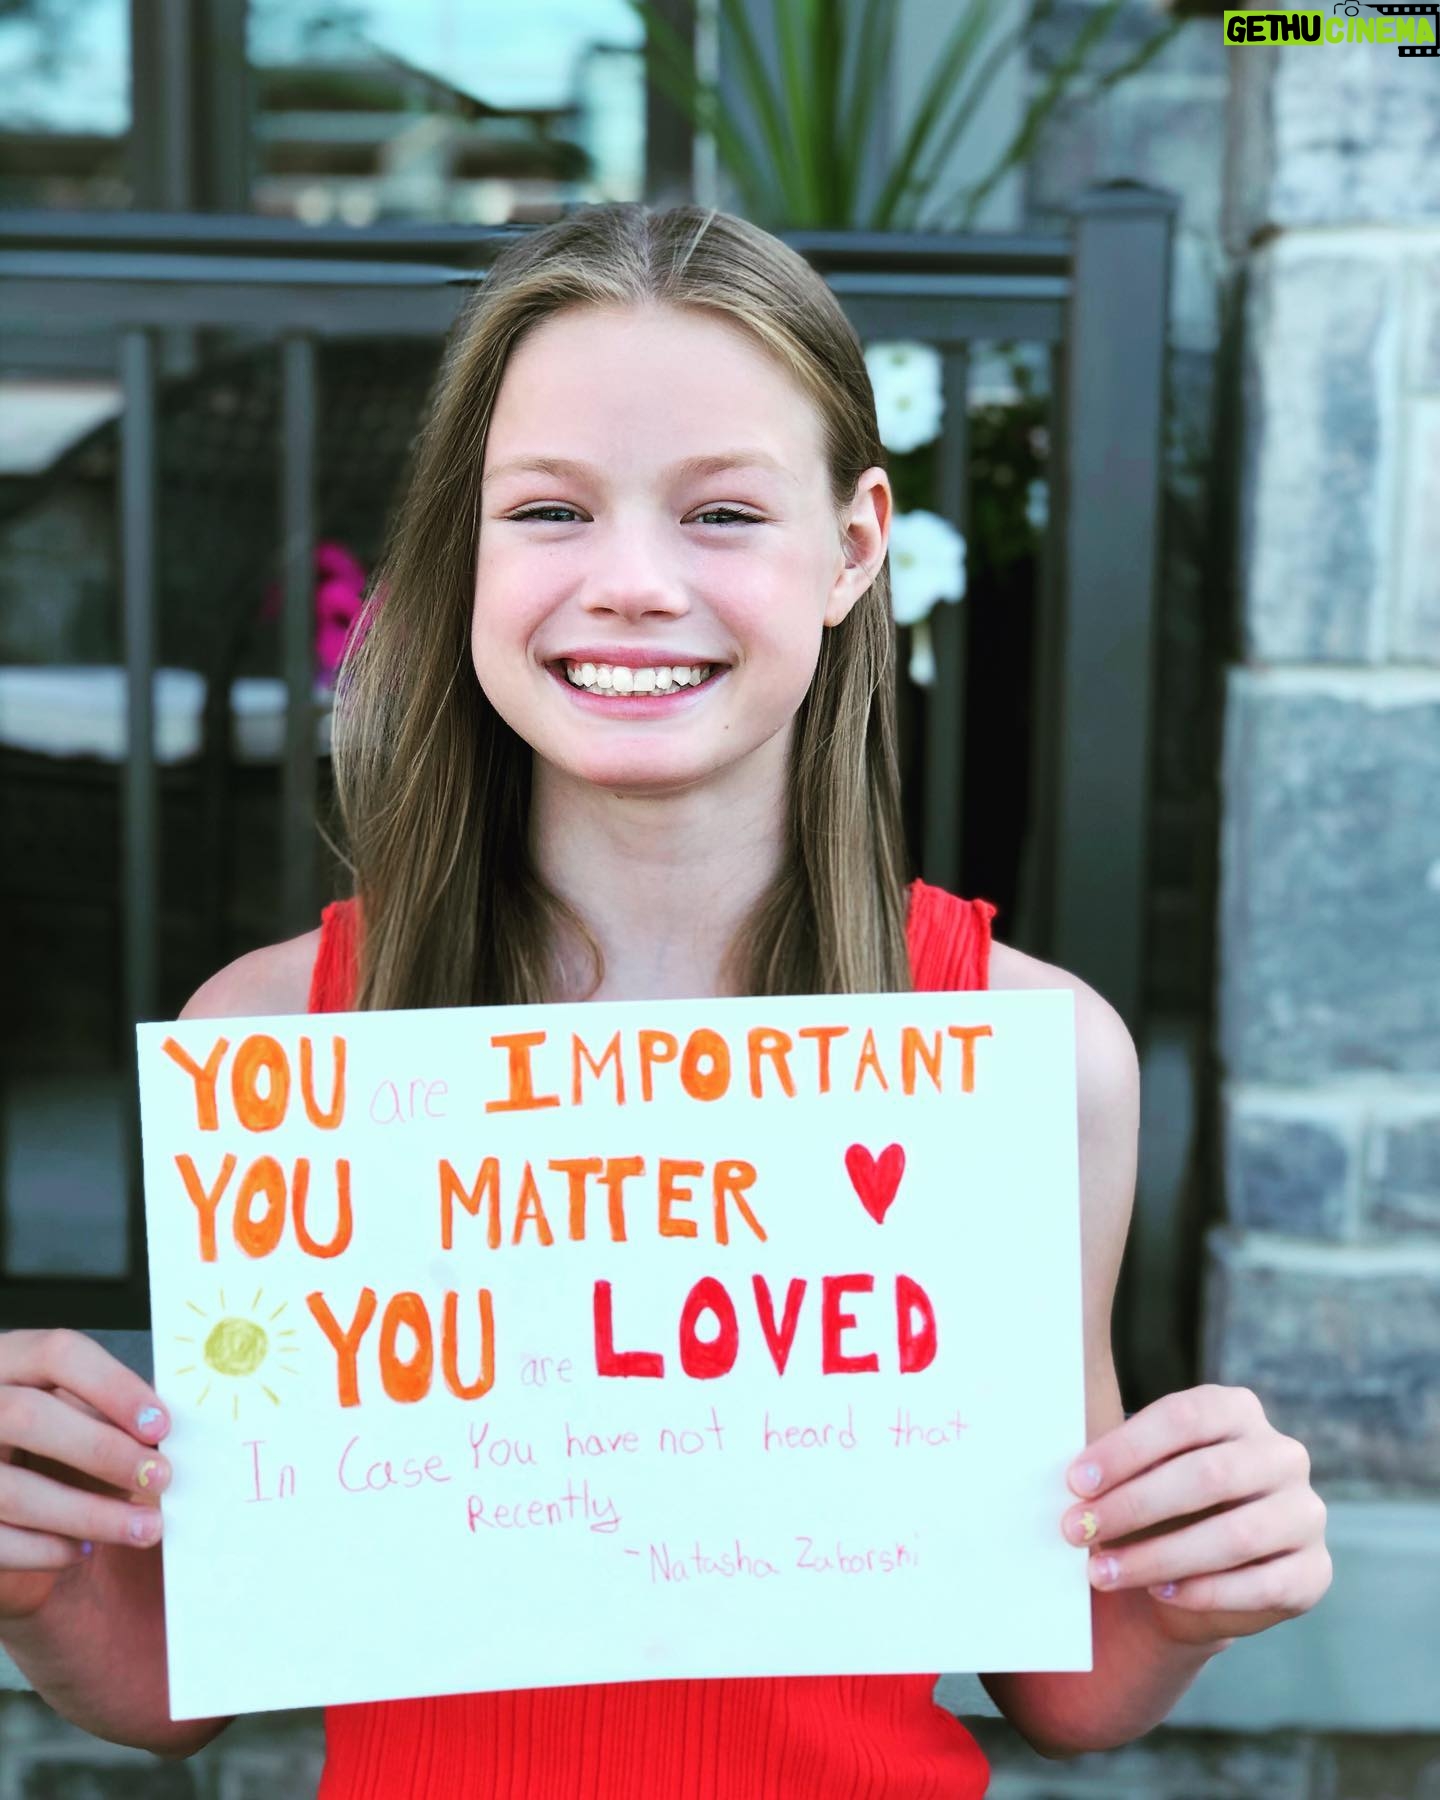 GETHUCINEMA
YOU are IMPORTANT
YOU MATTER
YOU are LOVED
In Case You have not heard that
Recently
-Natasha Zaborski